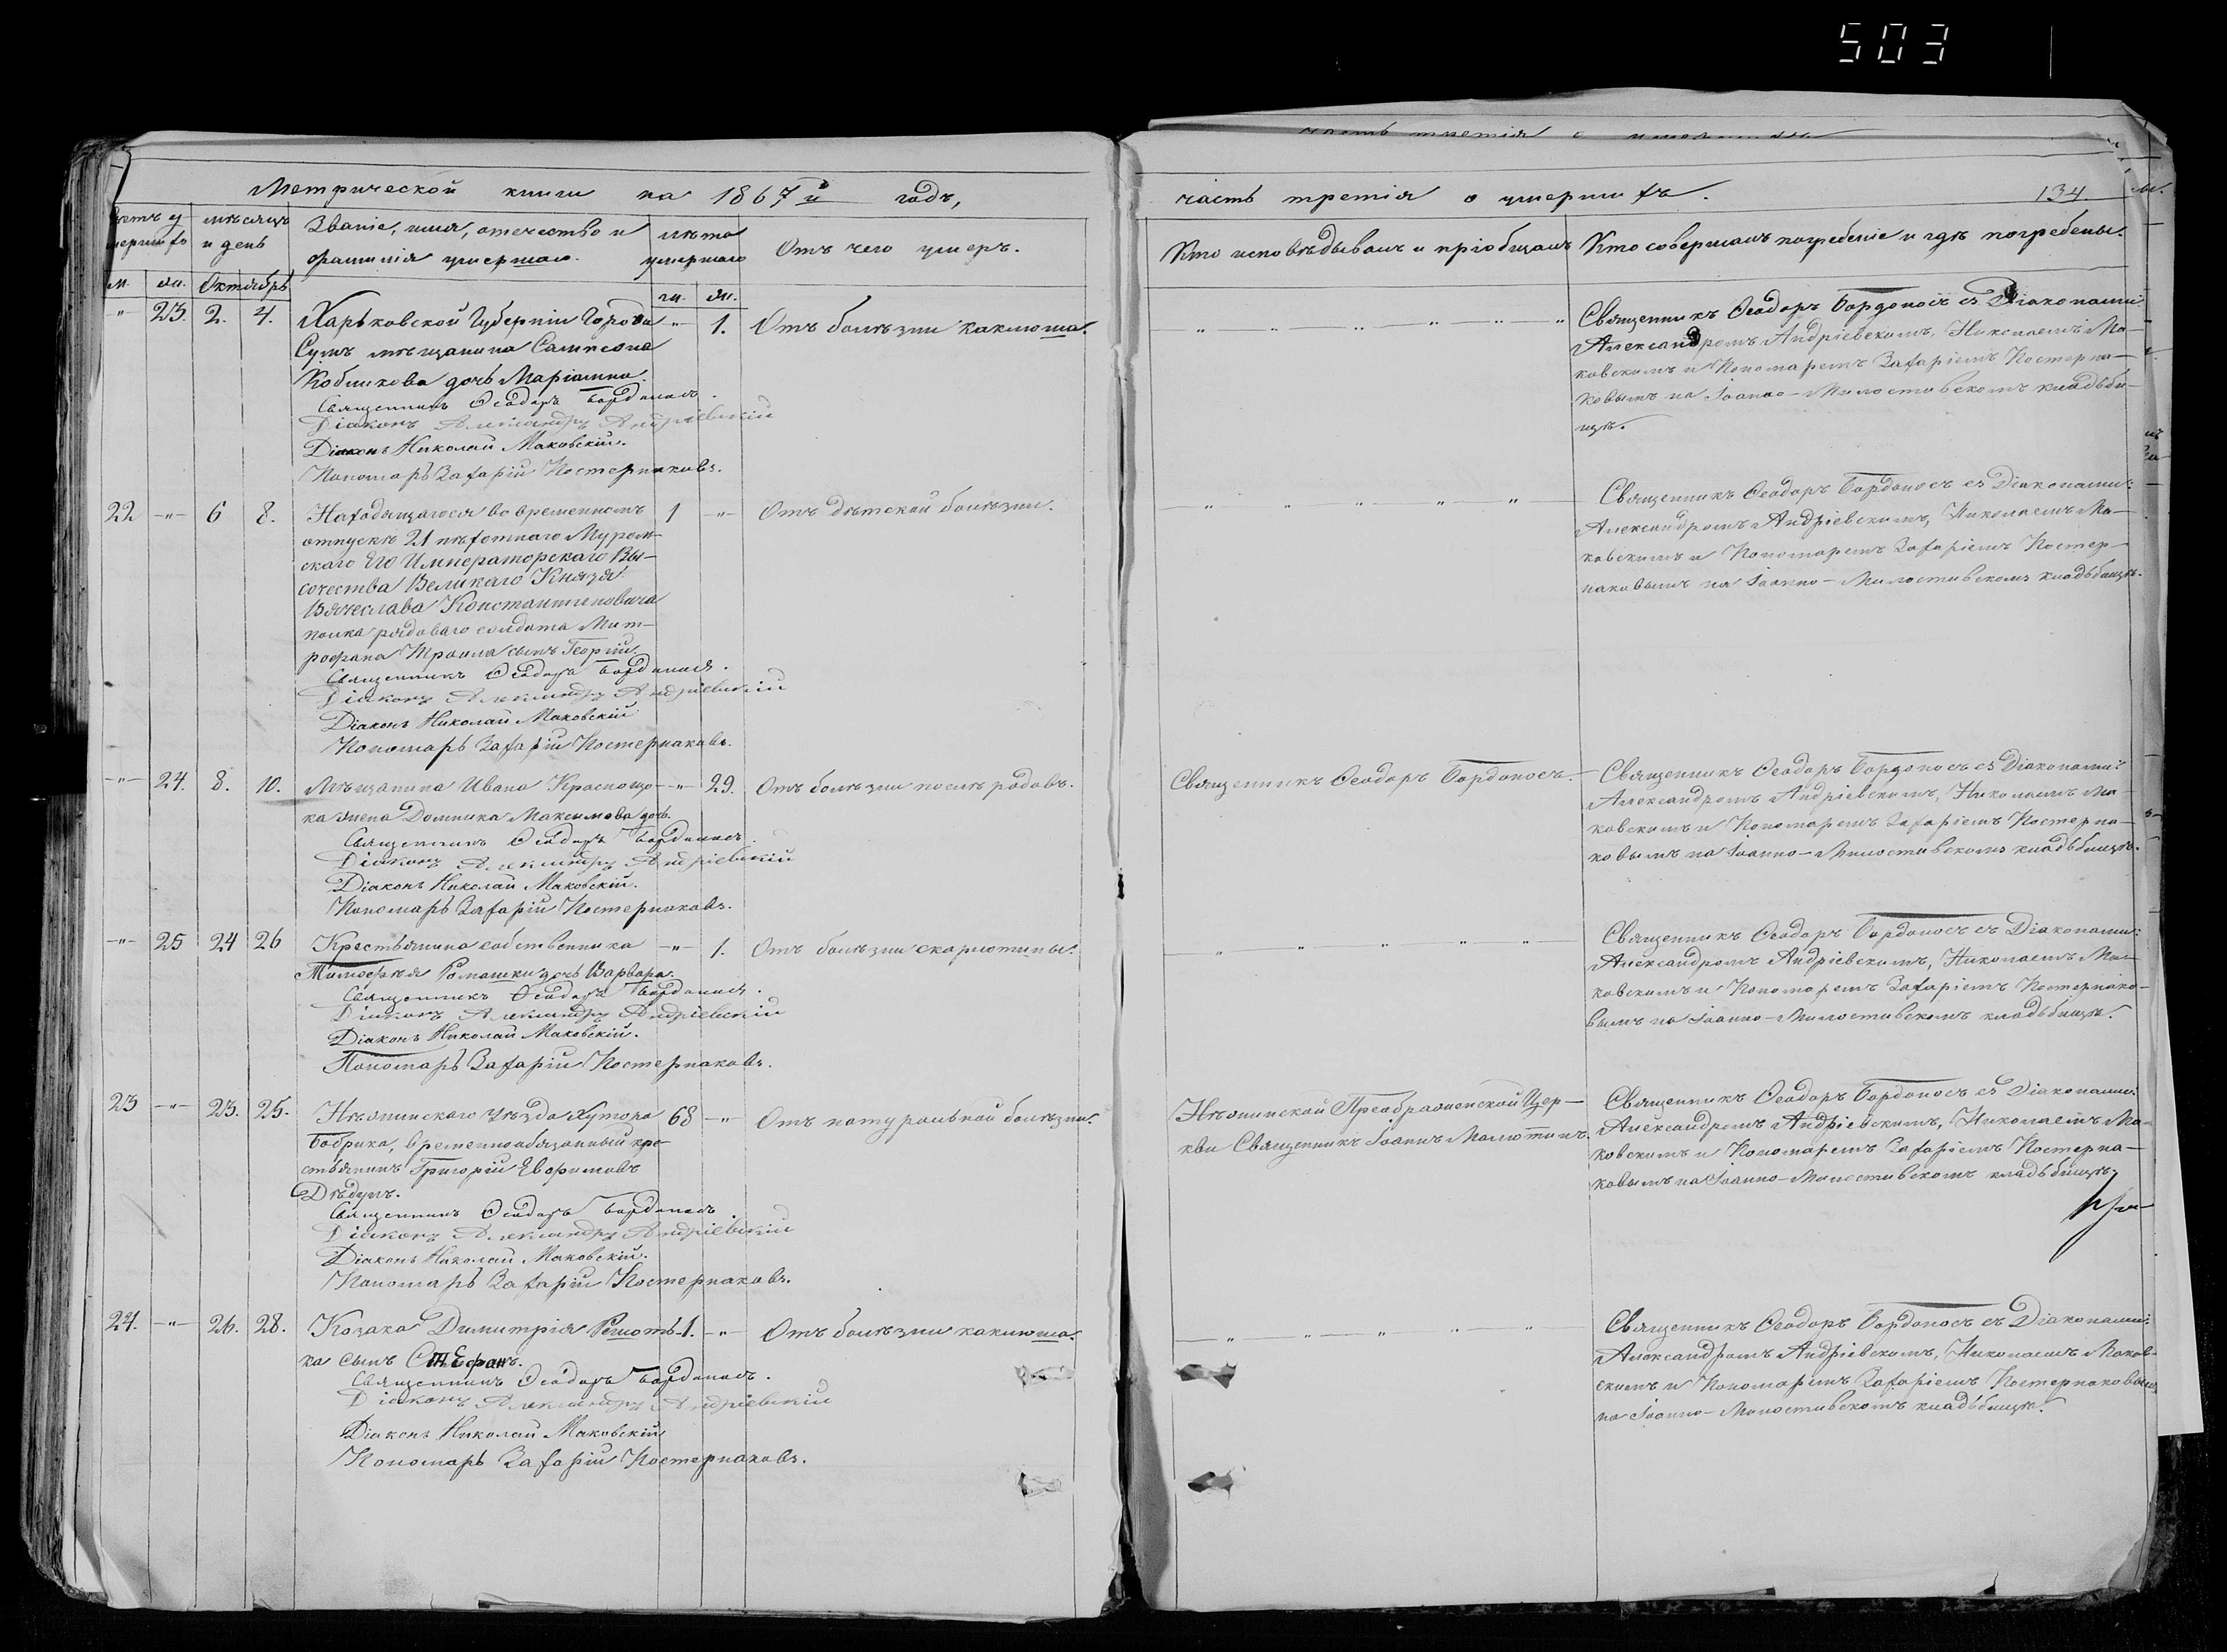 503
часть третія о умершихъ
Метрической книги на 1867й годъ,
часть третія о умершихъ.
134.
Счетъ умершихъ
мѣсяцъ и день
Званіе, имя, отечество и фамилія умершаго.
лѣта умершаго
Отъ чего умеръ.
Кто исповѣдывалъ и пріобщалъ
Кто совершалъ погребеніе и гдѣ погребены.
м. жп. Октябрь
м. жп.
" 23. 2. 4. Харьковской Губерніи Города " 1. Отъ болѣзни коклюша.
Сумъ мѣщанина Сампсона
Кобликова дочь Маріамна.
Священникъ Ѳеодоръ Бордоносъ.
Діаконъ Александръ Андріевскій
Діаконъ Николай Маковскій.
Пономарь Захарій Костернаковъ.
Священникъ Ѳеодоръ Бордоносъ съ Діаконами:
Александромъ Андріевскимъ, Николаемъ Ма-
ковскимъ и Пономаремъ Захаріемъ Костерна-
ковымъ на Іоанно-Милостивскомъ кладьби-
щѣ.
22 -"- 6 8. Находящагося во временномъ 1 -"- Отъ дѣтской болѣзни.
отпускѣ 21 пѣхотнаго Муром-
скаго Его Императорскаго Вы-
сочества Великаго Князя
Вячеслава Константиновича
полка рядоваго солдата Мит-
рофана сынъ Георгій.
Священникъ Ѳеодоръ Бордоносъ.
Діаконъ Александръ Андріевскій
Діаконъ Николай Маковскій
Пономарь Захарій Костернаковъ.
Священникъ Ѳеодоръ Бордоносъ съ Діаконами:
Александромъ Андріевскимъ, Николаемъ Ма-
ковскимъ и Пономаремъ Захаріемъ Костер-
наковымъ на Іоанно-Милостивскомъ кладьбищѣ.
-"- 24. 8. 10. Мѣщанина Ивана Краснощо- -"- 29. Отъ болѣзни послѣ родовъ.
ка жена Домника Максимова дочь.
Священникъ Ѳеодоръ Бордоносъ.
Діаконъ Александръ Андріевскій
Діаконъ Николай Маковскій.
Пономарь Захарій Костернаковъ.
Священникъ Ѳеодоръ Бордоносъ.
Священникъ Ѳеодоръ Бордоносъ съ Діаконами:
Александромъ Андріевскимъ, Николаемъ Ма-
ковскимъ и Пономаремъ Захаріемъ Костерна-
ковымъ на Іоанно-Милостивскомъ кладьбищѣ.
-"- 25 24 26 Крестьянина собственника -"- 1. Отъ болѣзни скарлотины.
Тимоѳѣя Ромашки дочь Варвара.
Священникъ Ѳеодоръ Бордоносъ.
Діаконъ Александръ Андріевскій
Діаконъ Николай Маковскій.
Пономарь Захарій Костернаковъ.
Священникъ Ѳеодоръ Бордоносъ съ Діаконами:
Александромъ Андріевскимъ, Николаемъ Ма-
ковскимъ и Пономаремъ Захаріемъ Костернако-
вымъ на Іоанно-Милостивскомъ кладьбищѣ.
23 -"- 23. 25. Нѣжинскаго уѣзда Хутора 68 -"- Отъ натуральной болѣзни.
Бобрика, временнообязанный кре-
стьянинъ Григорій Евфимовъ
Дѣдулъ.
Священникъ Ѳеодоръ Бордоносъ.
Діаконъ Александръ Андріевскій
Діаконъ Николай Маковскій.
Пономарь Захарій Костернаковъ.
Нѣжинской Преображенской Цер-
кви Священникъ Іоаннъ Малютинъ.
Священникъ Ѳеодоръ Бордоносъ съ Діаконами:
Александромъ Андріевскимъ, Николаемъ Ма-
ковскимъ и Пономаремъ Захаріемъ Костерна-
ковымъ на Іоанно-Милостивскомъ кладьбищѣ.
24. -"- 26. 28. Козака Димитрія Решоть- 1. -"- Отъ болѣзни коклюша.
ка сынъ Стефанъ.
Священникъ Ѳеодоръ Бордоносъ.
Діаконъ Александръ Андріевскій
Діаконъ Николай Маковскій
Пономарь Захарій Костернаковъ.
Священникъ Ѳеодоръ Бордоносъ съ Діаконами:
Александромъ Андріевскимъ, Николаемъ Маков-
скимъ и Пономаремъ Захаріемъ Костернаковымъ
на Іоанно-Милостивскомъ кладьбищѣ.